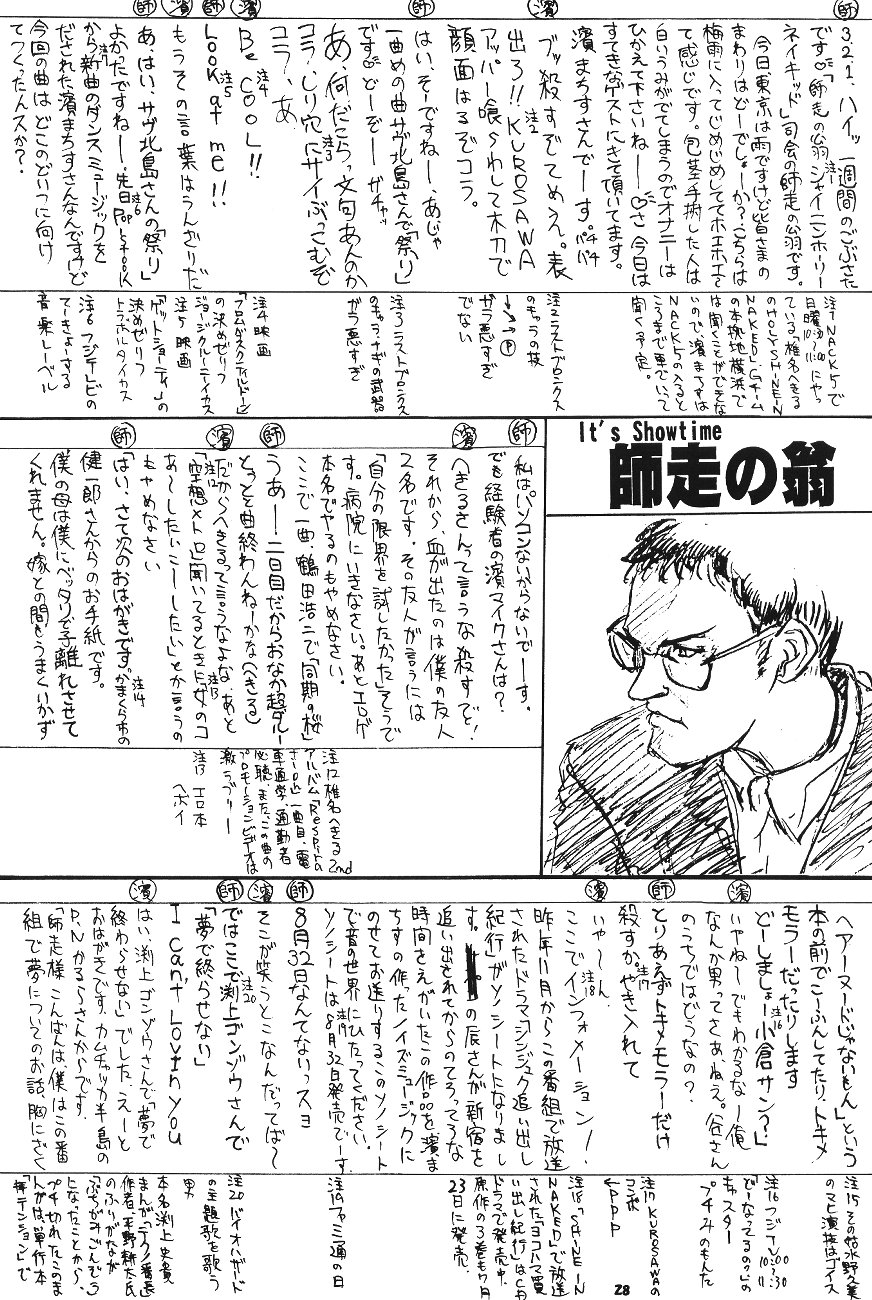 師
321、ハイッ一週間のごぶさた
です♡「師走の翁 シャイニンホーリー
注1
ネイキッド」司会の師走の翁です。
今日東京は雨ですけど皆さまの
まわりはどーでしょーか?こちらは
梅雨に入ってじめじめしててホエホエ
て感じです。包茎手術した人は
白いうみがでてしまうのでオナニーは
ひかえて下さいねー♡さ今日は
すてきなゲストにきて頂いてます。
濱まちすさんでーす。パチパチ
濱
ブッ殺すぞてめえ。表
出ろ!!KUROSAWA
注2
アッパー喰らわして木刀で
顔面はるぞコラ。
師
はい、そーですねー、あじゃ
一曲めの曲サヴ北島さんで「祭り」
です♡どーぞーガチャッ
あ、何だこらっ文句あんのか
コラ、しり穴にサイぶっこむぞ
注3
コラ、あ
濱
Be COOL!!
注4
師
Look at me!!
注5
濱
もうその言葉はうんざりだ
師
あ、はい、サヴ北島さんの「祭り」
よかったですねー。先日Pop stock
注6
から新曲のダンスミュージックを
だされた濱まちすさんなんですけど
今回の曲はどこのどいつに向け
てつくったんスか?
注1 NACK5で
日曜10:30〜11:00にやっ
ている椎名へきる
のHOLY SHINE IN
NAKED。Gチーム
の本拠地横浜で
は聞くことができな
いので濱まちすは
NACK5の入ると
ころまで車でいって
聞く予定。
注2 ラストブロンクス
のキャラの技
→↘→Ⓟ
ガラ悪すぎ
でない
注3 ラストブロンクス
のキャラナギの武器
ガラ悪すぎ
注4 映画
「フロムダスクティルドーン」
の決めぜりフ
ジョージクルーニーイカス
注5 映画
「ゲットショーティ」の
決めぜりフ
トラボルタイカス
注6 フジテレビの
てーきょーする
音楽レーベル
It's Showtime
師走の翁
師
私はパソコンないからないでーす。
でも経験者の濱マイクさんは?
濱
へきるさんって言うな殺すぞ!
それから、血が出たのは僕の友人
2名です。その友人が言うには
「自分の限界を試したかった」そうで
す。病院にいきなさい。あとエロゲ
本名でやるのもやめなさい。
ここで一曲、鶴田浩二で「同期の桜」
師
うあー!二日目だからおなか超ダルー
とっとと曲終わんねーかな(へきる)
濱
だからへきるって言うなよな、あと
「空想メトロ」聞いてるときに女のコ
注12
注13
あーしたいこーしたい」とか言うの
もやめなさい
師
「はい、さて次のおはがきです。かまくら市の
注14
健一郎さんからのお手紙です。
僕の母は僕にベッタリで子離れさせて
くれません。嫁との間もうまくいかず
注12 椎名へきる2nd
アルバム「Respiratio
さーの一曲目、電
車通学、通勤者
必聴。また、この曲の
プロモーションビデオは
激ラブリー
注13 エロ本
ヘボイ
ヘアーヌードじゃないもん」という
本の前でこーふんしてたり、トキメ
モラーだったりします
どーしましょー小倉サン?」
注16
濱
いやねーでもわかるなー俺
なんか男ってさぁ、ねえ。谷さん
のうちではどうなの?
師
とりあえずトキメモラーだけ
殺すか。やき入れて
注17
濱
いやーん。
ここでインフォメーション!
注18
昨年11月からこの番組で放送
されたドラマ「シンジュク追い出し
紀行」がソノシートになりまし
す。
の辰さんが新宿を
追い出されてからのてろってろな
時間をえがいたこの作品を濱ま
ちすの作ったノイズミュージックに
のせてお送りするこのソノシート
で音の世界にひたってください。
ソノシートは8月32日発売でーす。
注19
師
8月32日なんてないっスヨ
濱
そこが笑うとこなんだってば〜
師
ではここで渕上ゴンゾウさんで
注20
「夢で終らせない」
I can't Lovin you
濱
はい、渕上ゴンゾウさんで「夢で
終わらせない」でした。えーと
おはがきです、カムチャッカ半島の
P.Nかるらさんからです。
「師走様こんばんは僕はこの番
組で夢についてのお話、胸にざく
注15 その姑水野久美
のマヒ演技はゴイス
注16 フジテレ10:00〜11:30
「どーなってるの!?」の
キャスター
プチみのもんた
注17 KUROSAWAの
コンボ
←PPP
注18 「SHINE IN
NAKED」で放送
された「ヨコハマ買
い出し紀行」はCD
ドラマで発売中、
原作の3巻も7月
23日に発売。
注19 ファミ通の日
注20 バイオハザード
の主題歌を歌う
男
本名渕上史貴
まんが「テクノ番長」
作者平野耕太氏
のふりがなが
「ふちがみごんぞう
になったことから、
プチ切れたこのま
んがは、単行本
「拝テンション」で
28